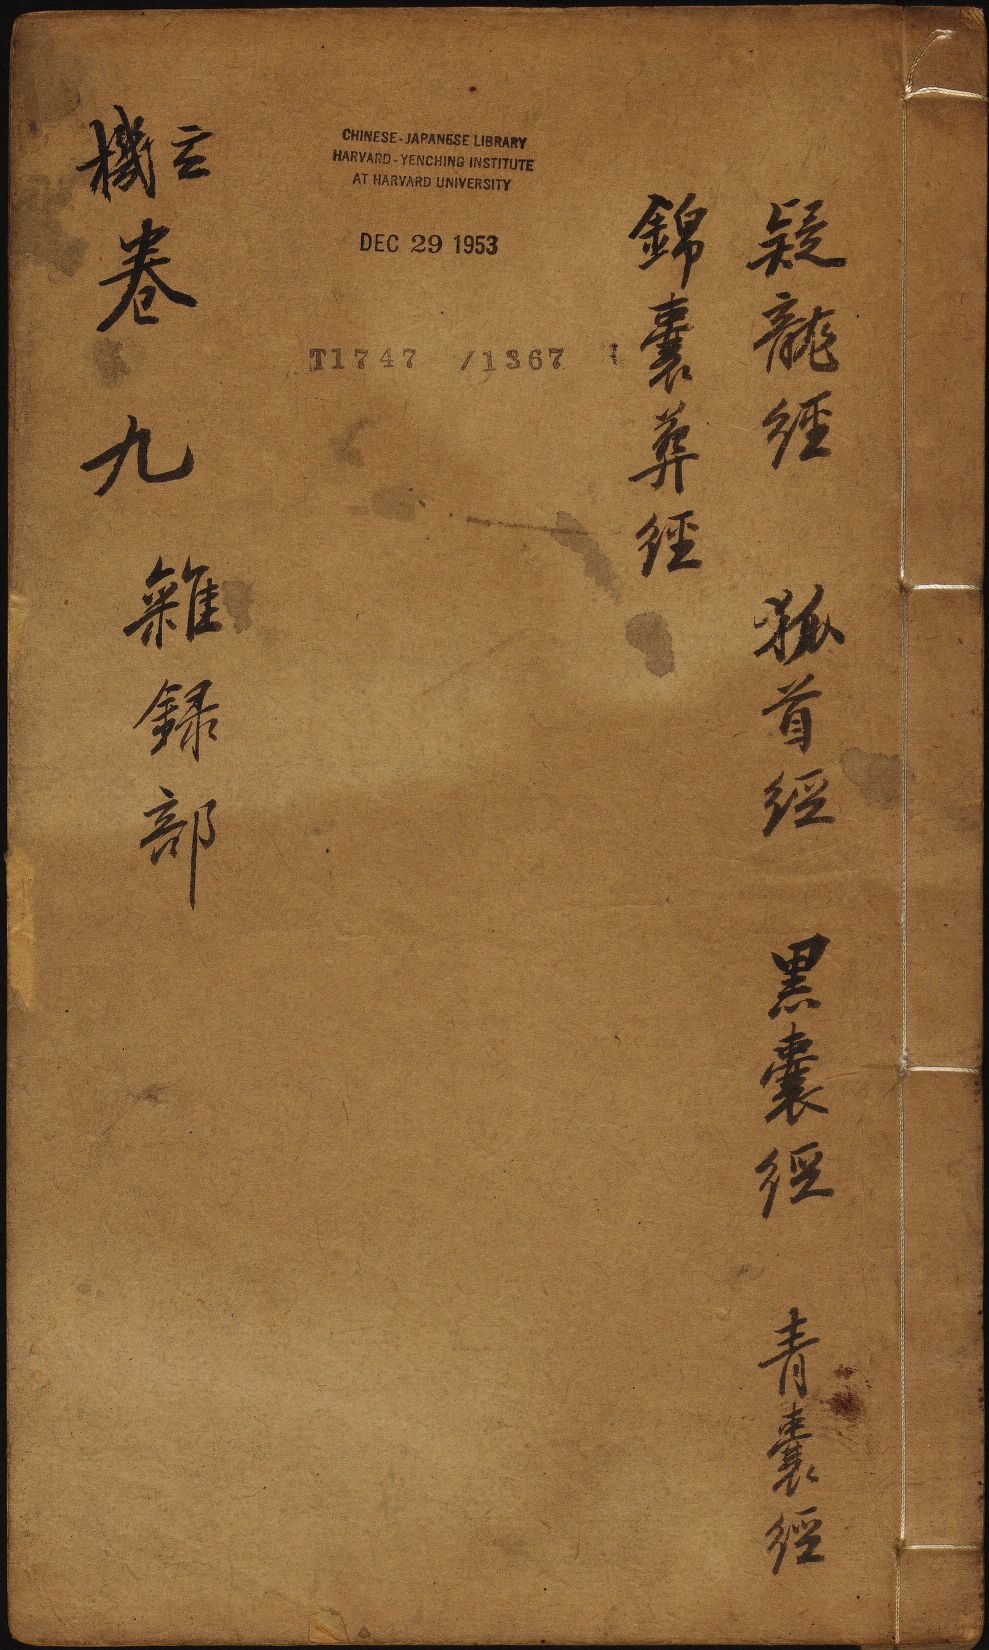 疑龍經　狐首經　黑囊經　青囊經
錦囊葬經
CHINESE-JAPANESE LIBRARY
HARVARD-YENCHING INSTITUTE
AT HARVARD UNIVERSITY
DEC 29 1953
T1747 /1367
玄機卷九
雜録部